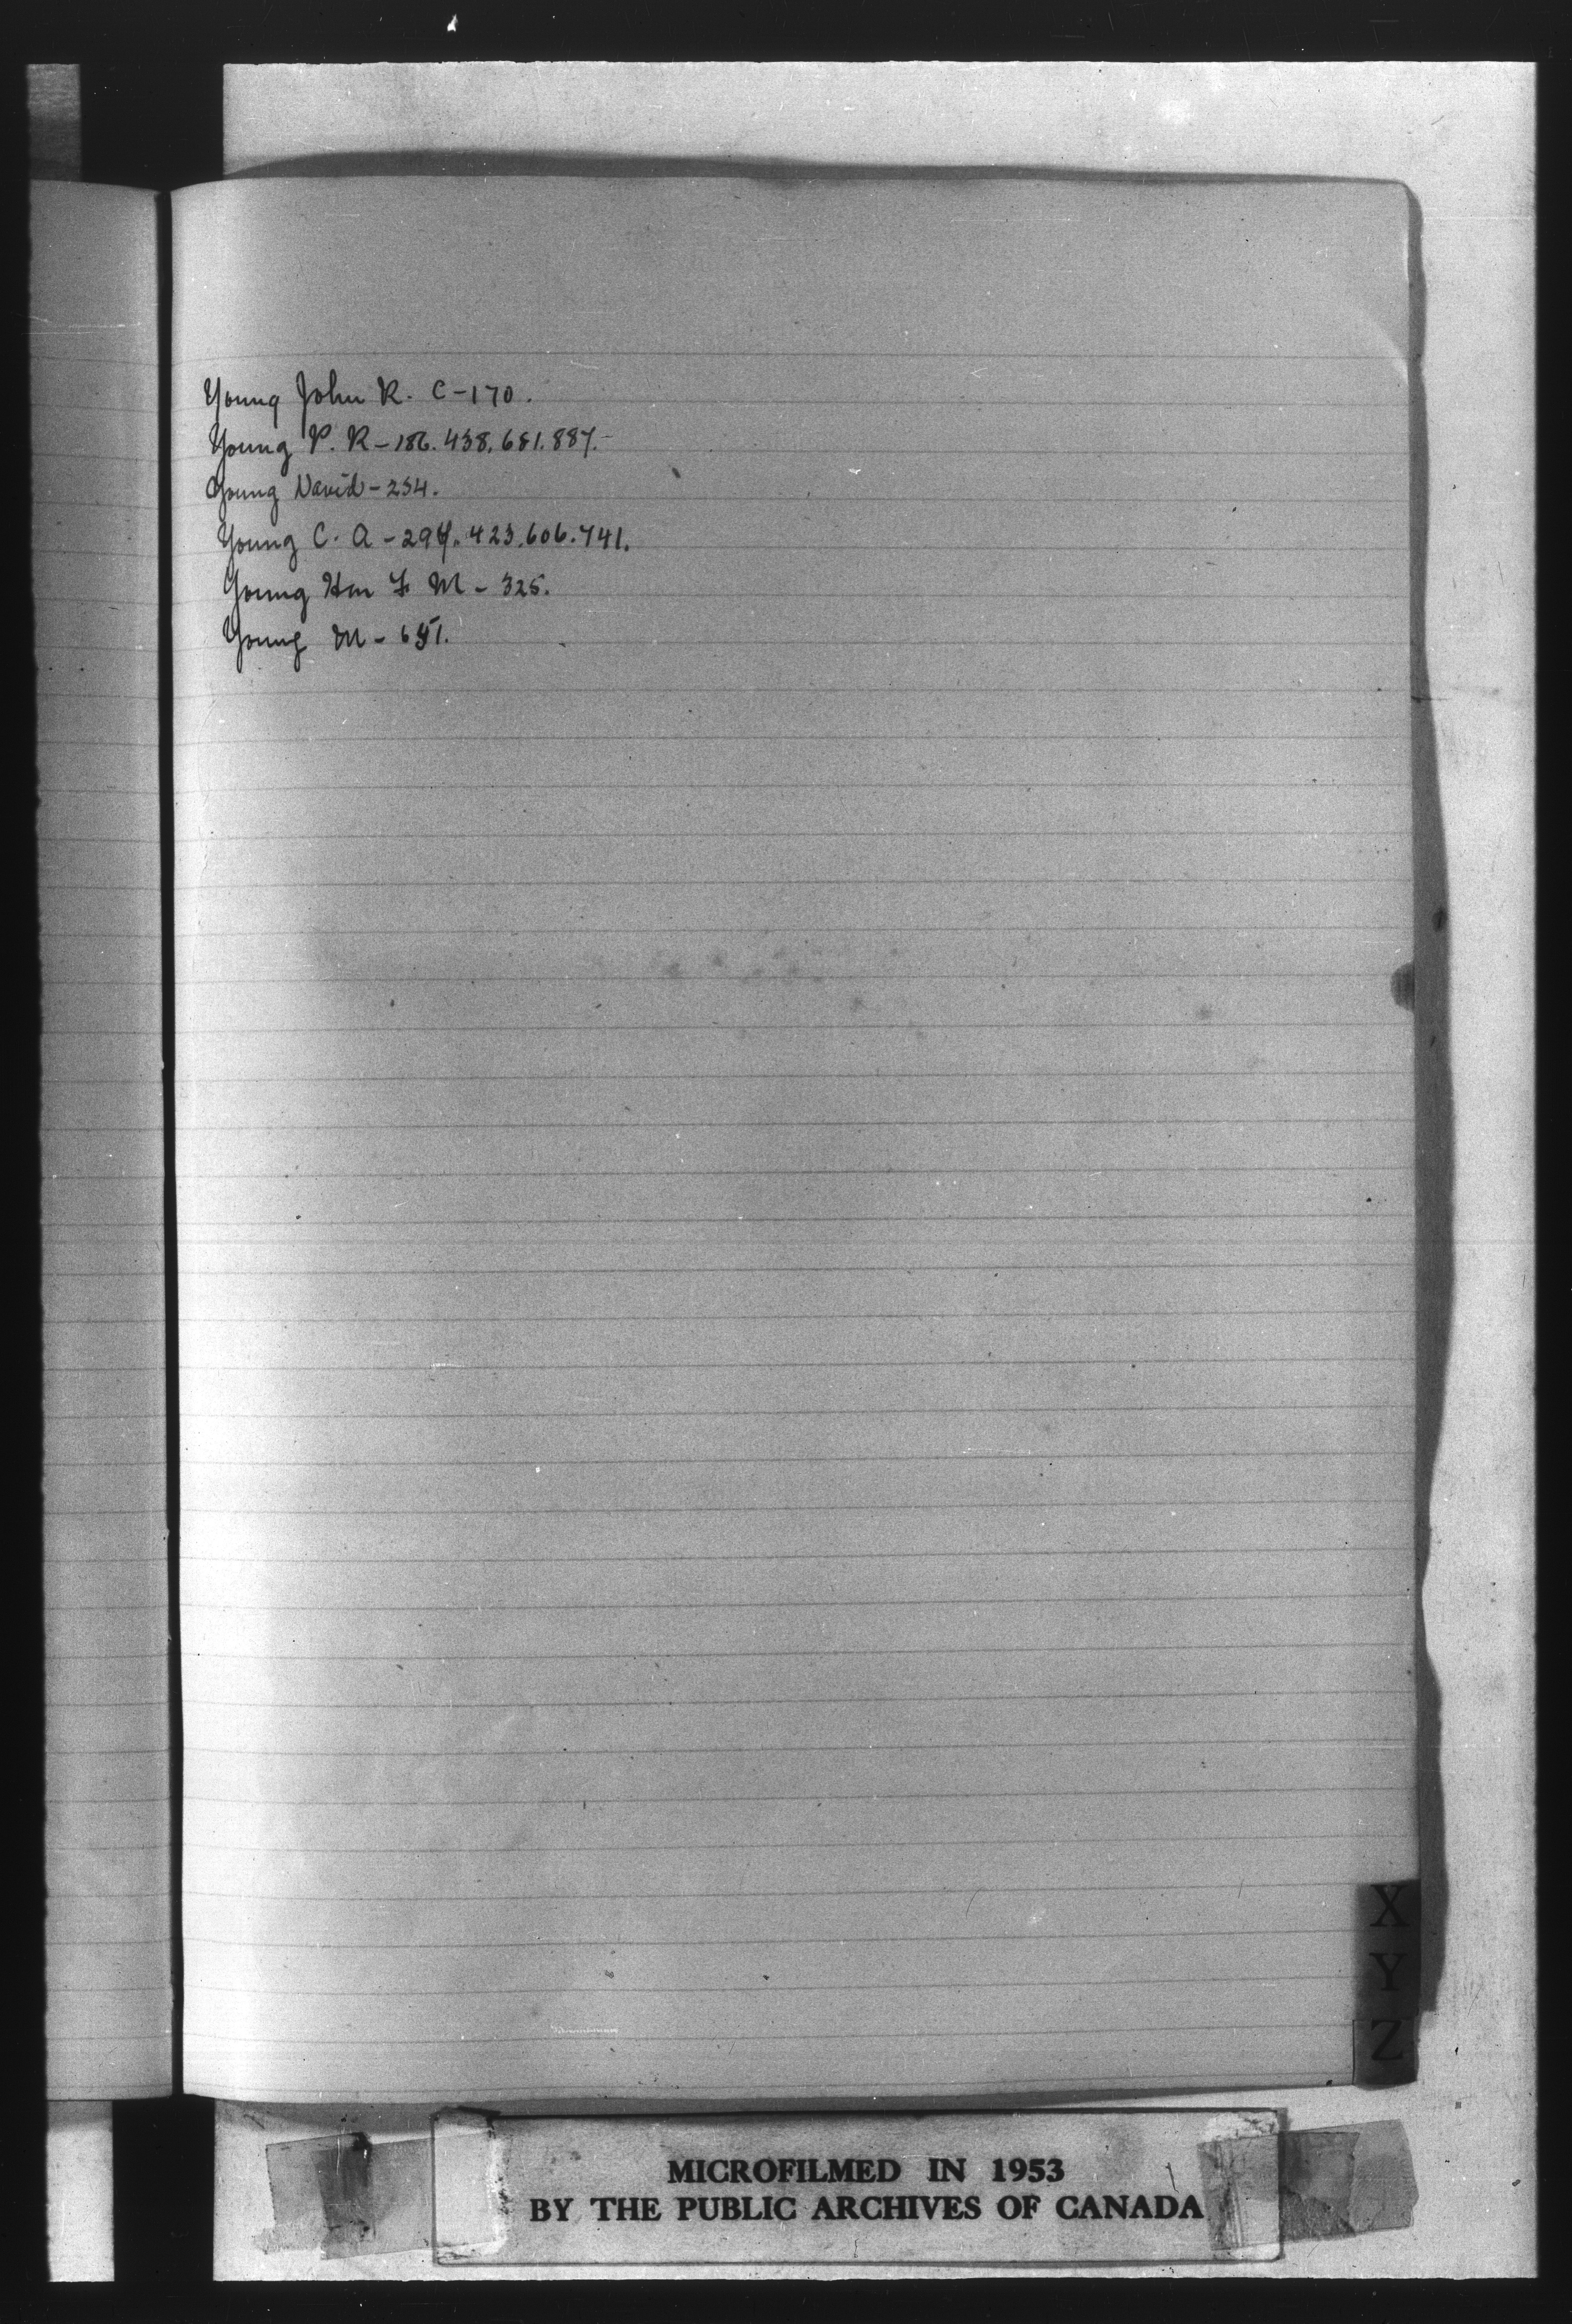 Young John R. C-170.
Young P. R-186.438.681.887.-
Young David-234.
Young C. A-294.423.606.741.
Young Hon F M-325.
Young M-651.
X
Y
Z
MICROFILMED IN 1953
BY THE PUBLIC ARCHIVES OF CANADA